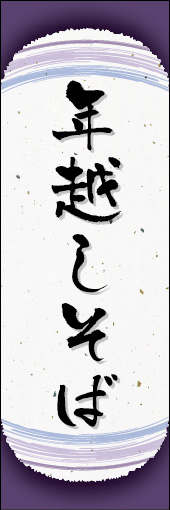 年越しそば